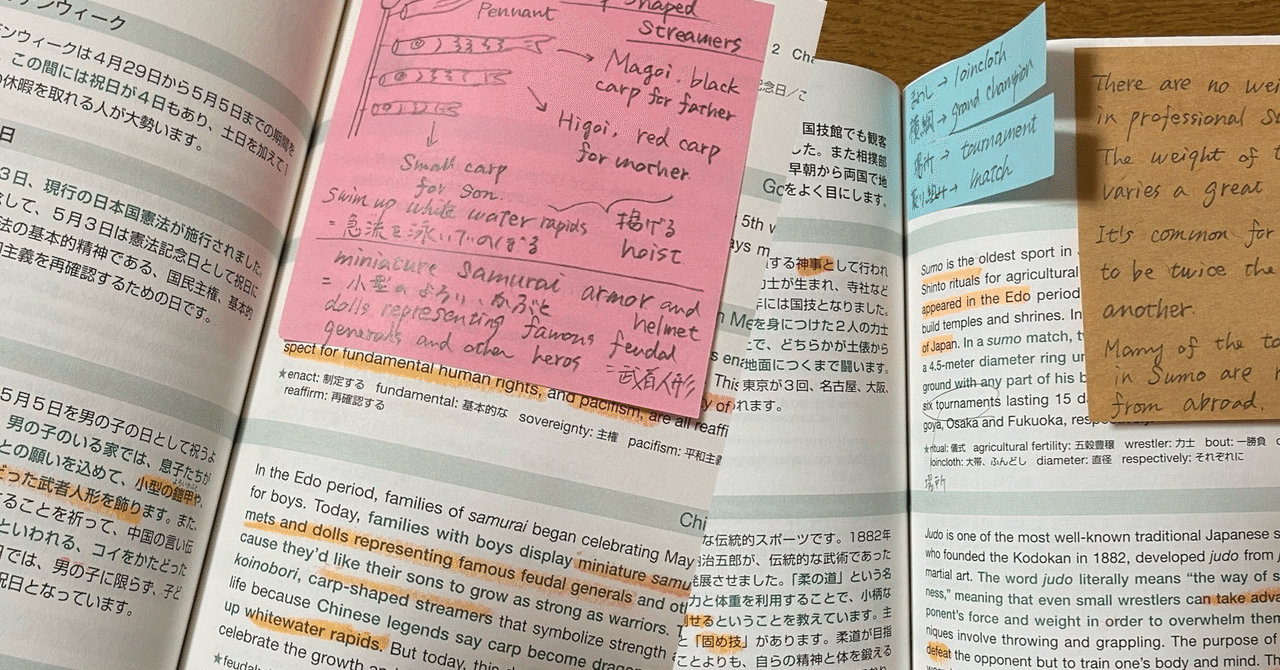 ンウィーク
ンウィークは4月29日から5月5日までの期間を
、この間には祝日が4日もあり、土日を加えて1
の休暇を取れる人が大勢います。
日
3日、現行の日本国憲法が施行されました。
念して、5月3日は憲法記念日として祝日に
法の基本的精神である、国民主権、基本的
和主義を再確認するための日です。
5月5日を男の子の日として祝うよ
男の子のいる家では、息子たちが
との願いを込めて、小型の鎧甲や、
だった武者人形を飾ります。また、
することを祈って、中国の言い伝
といわれる、コイをかたどった
日では、男の子に限らず、子ど
祝日となっています。
Pennant
Shaped
Streamers
Magoi. black
carp for father
Higoi, red carp
for mother.
Small carp
for son.
Swim up white water rapids
= 急流を泳いでのぼる
揚げる
hoist
miniature samurai armor and
helmet
= 小型のよろい、かぶと
dolls representing famous feudal
generals and other heros
= 武者人形
spect for fundamental human rights, and pacifism, are all reaffi
★enact: 制定する fundamental: 基本的な sovereignty: 主権 pacifism: 平和主義
reaffirm: 再確認する
In the Edo period, families of samurai began celebrating May
for boys. Today, families with boys display miniature samu
mets and dolls representing famous feudal generals and oth
cause they'd like their sons to grow as strong as warriors.
koinobori, carp-shaped streamers that symbolize strength
life because Chinese legends say carp become drago
up whitewater rapids. But today, this
celebrate the growth an
★feudal
2 Cha
念日/こ
Go
5th
ays m
Me
s ena
This
y of
Chi
国技館でも観客
した。また相撲部
早朝から両国で地
をよく目にします。
する神事として行われ
力士が生まれ、寺社など
年には国技となりました。
を身につけた2人の力士
で、どちらかが土俵から
地面につくまで闘います。
東京が3回、名古屋、大阪、
れます。
な伝統的スポーツです。1882年
治五郎が、伝統的な武術であった
発展させました。「柔の道」という名
力と体重を利用することで、小柄な
せるということを教えています。主
と「固め技」があります。柔道が目指
ことよりも、自らの精神と体を鍛える
まわし → loincloth
横綱 → grand champion
場所 → tournament
取り組み → match
There are no wei
in professional Su
The weight of t
varies a great
It's common for
to be twice the
another.
Many of the to
in Sumo are
from abroad.
Sumo is the oldest sport in
Shinto rituals for agricultural
appeared in the Edo period
build temples and shrines. In
of Japan. In a sumo match, t
a 4.5-meter diameter ring un
ground with any part of his b
six tournaments lasting 15 d
goya, Osaka and Fukuoka, respectively.
★ritual: 儀式 agricultural fertility: 五穀豊穣 wrestler: 力士 bout: 一勝負
loincloth: 大帯、ふんどし diameter: 直径 respectively: それぞれに
場所
Judo is one of the most well-known traditional Japanese s
who founded the Kodokan in 1882, developed judo from
martial art. The word judo literally means "the way of s
ness," meaning that even small wrestlers can take adva
ponent's force and weight in order to overwhelm them
niques involve throwing and grappling. The purpose of
defeat the opponent but to train one's body and mind. The